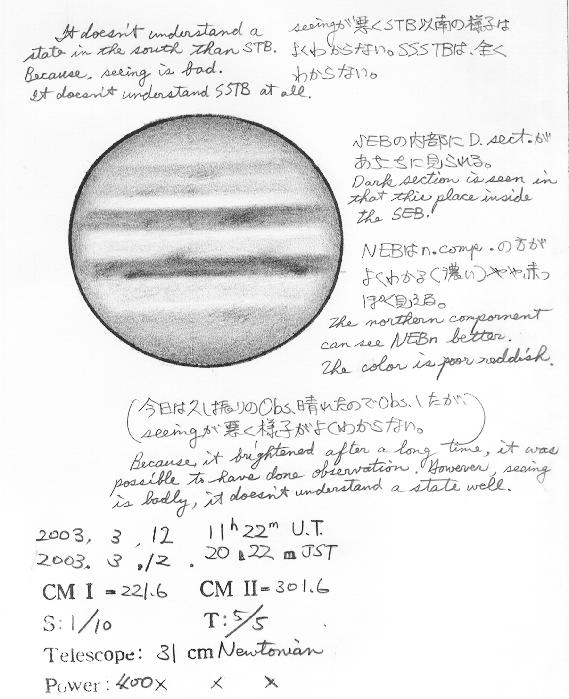 It doesn't understand a
state in the south than STB.
Because, seeing is bad.
It doesn't understand SSTB at all.
seeingが悪くSTB以南の様子は
よくわからない。SSSTBは、全く
わからない。
NEBの内部にD.sect.が
あちこちに見られる。
Dark section is seen in
that this place inside
the SEB.
NEBはn.comp.の方が
よくわかる(濃い)やや赤っ
ぽく見える。
The northern compornent
can see NEBn better.
The color is poor reddish.
(今日は久し振りのObs、晴れたのでObs、したが、
seeingが悪く様子がよくわからない。)
Because, it brightened after a long time, it was
possible to have done observation. However, seeing
is badly, it doesn't understand a state well.
2003. 3 .12 11h 22m U.T.
2003. 3 .12 . 20 h 22 m JST
CM I = 221.6 CM II = 301.6
S: 1/10 T: 5/5
Telescope: 31 cm Newtonian
Power: 400× × ×